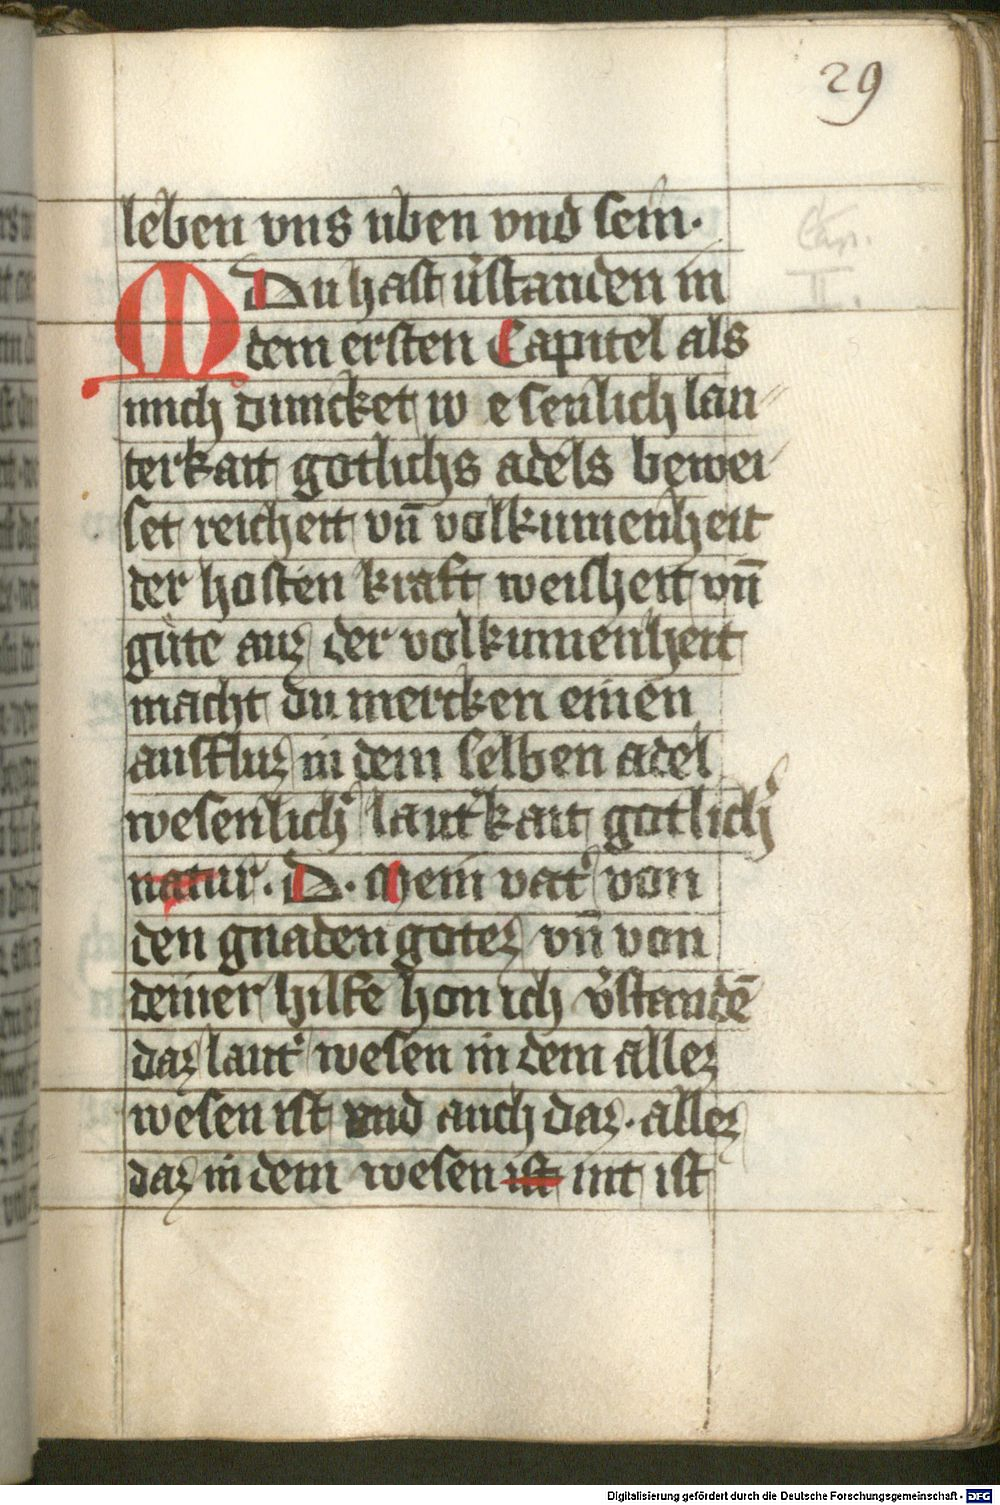 29
leben vns uben vnd sein.
Cap.
II.
M Du hast v̉standen in
dem ersten Capitel als
mich duncket w esenlich lau
terkait gotlichs adels bewei
set reicheit vn̄ volkumenheit
der hosten kraft weisheit vn̄
gute auz der volkumenheit
macht du mercken einen
ausfluz in dem selben adel
wesenlich̉ laut̉kait gotlich̉
natur. D. Mein vat̉ von
den gnaden gotez vn̄ von
deiner hilfe hon ich v̉standē
daz laut̉ wesen in dem allez
wesen ist vnd auch daz. allez
daz in dem wesen ist nit ist
Digitalisierung gefördert durch die Deutsche Forschungsgemeinschaft - DFG